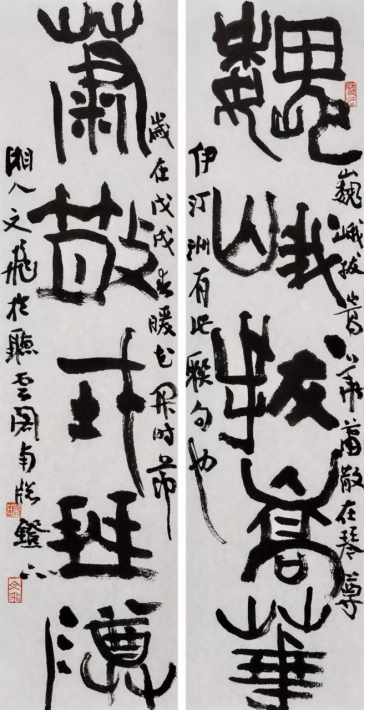 巍峨拔嵩華
巍峨拔嵩华萧散在琴尊
伊汀洲有此联句也
蕭散在琴尊
歲在戊戌春暖花開時節
湘人文飛於聽雲閣南牕鐙下